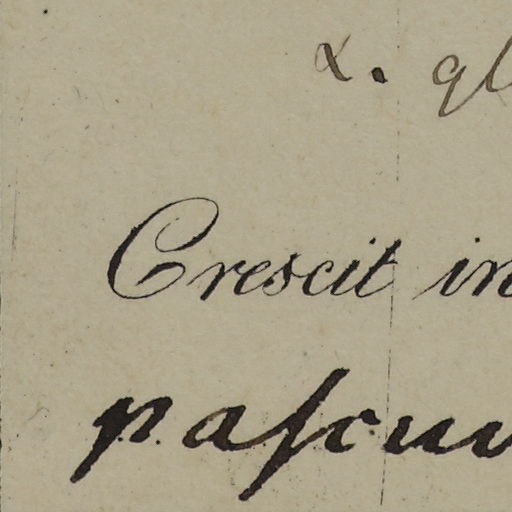 α. gl
Crescit in
paſcuu